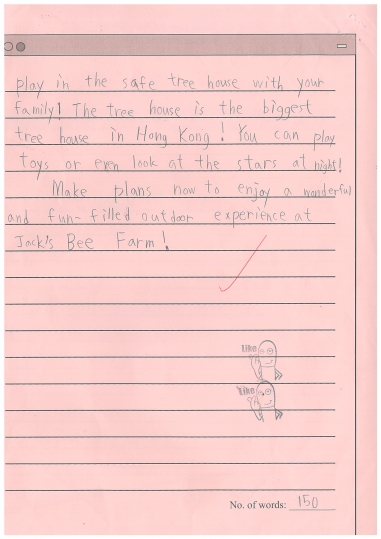 play in the safe tree house with your
family! The tree house is the biggest
tree house in Hong Kong! You can play
toys or even look at the stars at night!
Make plans now to enjoy a wonderful
and fun-filled outdoor experience at
Jack's Bee Farm!
No. of words: 150